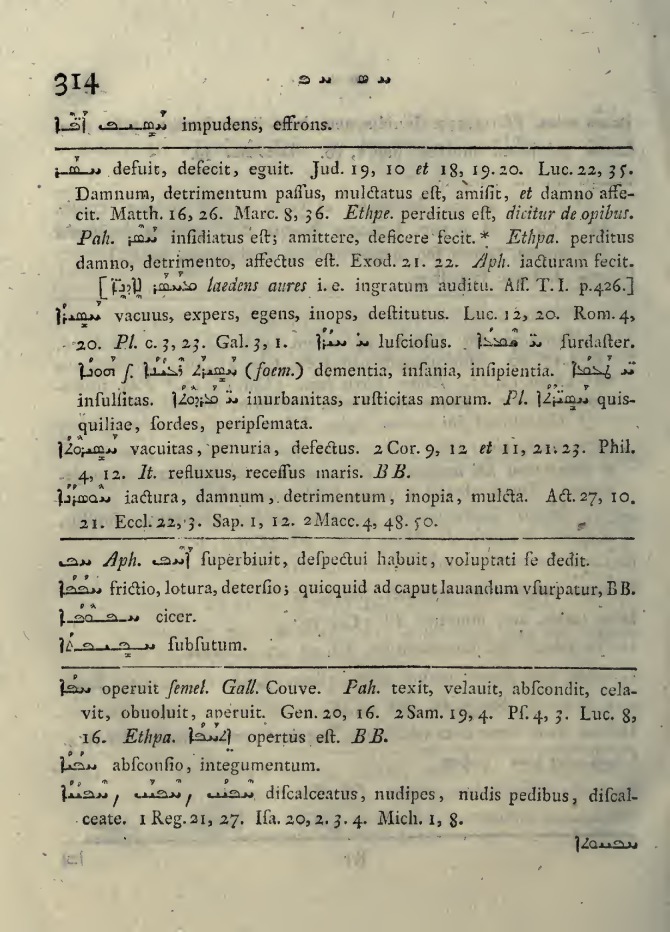 314 ܚܣ ܚܦ
ܚܣܝܦ ܐܦܐ impudens, effrons.
ܚܣܪ defuit, defecit, eguit. Jud. 19, 10 et 18, 19. 20. Luc. 22, 35.
Damnum, detrimentum paſſus, mulctatus eſt, amiſit, et damno affe-
cit. Matth. 16, 26. Marc. 8, 36. Ethpe. perditus eſt, dicitur de opibus.
Pah. ܚܣܪ inſidiatus eſt; amittere, deficere fecit. * Ethpa. perditus
damno, detrimento, affectus eſt. Exod. 21. 22. Aph. iacturam fecit.
[ܡܚܣܪ ܐܕܢܐ laedens aures i. e. ingratum auditu. Aſſ. T. I. p. 426.]
ܚܣܝܪܐ vacuus, expers, egens, inops, deſtitutus. Luc. 12, 20. Rom. 4,
20. Pl. c. 3, 23. Gal. 3, 1. luſcioſus. ſurdaſter.
(foem.) dementia, inſania, inſipientia.
inſulſitas. inurbanitas, ruſticitas morum. Pl. quis-
quiliae, ſordes, peripſemata.
ܚܣܝܪܘܬܐ vacuitas, penuria, defectus. 2 Cor. 9, 12 et 11, 21. 23. Phil.
4, 12. It. refluxus, receſſus maris. BB.
ܚܘܣܪܢܐ iactura, damnum, detrimentum, inopia, mulcta. Act. 27, 10.
21. Eccl. 22, 3. Sap. 1, 12. 2 Macc. 4, 48. 50.
ܚܦ Aph. ܐܚܦ ſuperbiuit, deſpectui habuit, voluptati ſe dedit.
ܚܦܦܐ frictio, lotura, deterſio; quicquid ad caput lauandum vſurpatur, BB.
cicer.
ſubſutum.
ܚܦܐ operuit ſemel. Gall. Couve. Pah. texit, velauit, abſcondit, cela-
vit, obuoluit, aperuit. Gen. 20, 16. 2 Sam. 19, 4. Pſ. 4, 3. Luc. 8,
16. Ethpa. ܐܬܚܦܝ opertus eſt. BB.
ܚܦܝܐ abſconſio, integumentum.
diſcalceatus, nudipes, nudis pedibus, diſcal-
ceate. 1 Reg. 21, 27. Iſa. 20, 2. 3. 4. Mich. 1, 8.
ܚܦܝܘܬܐ